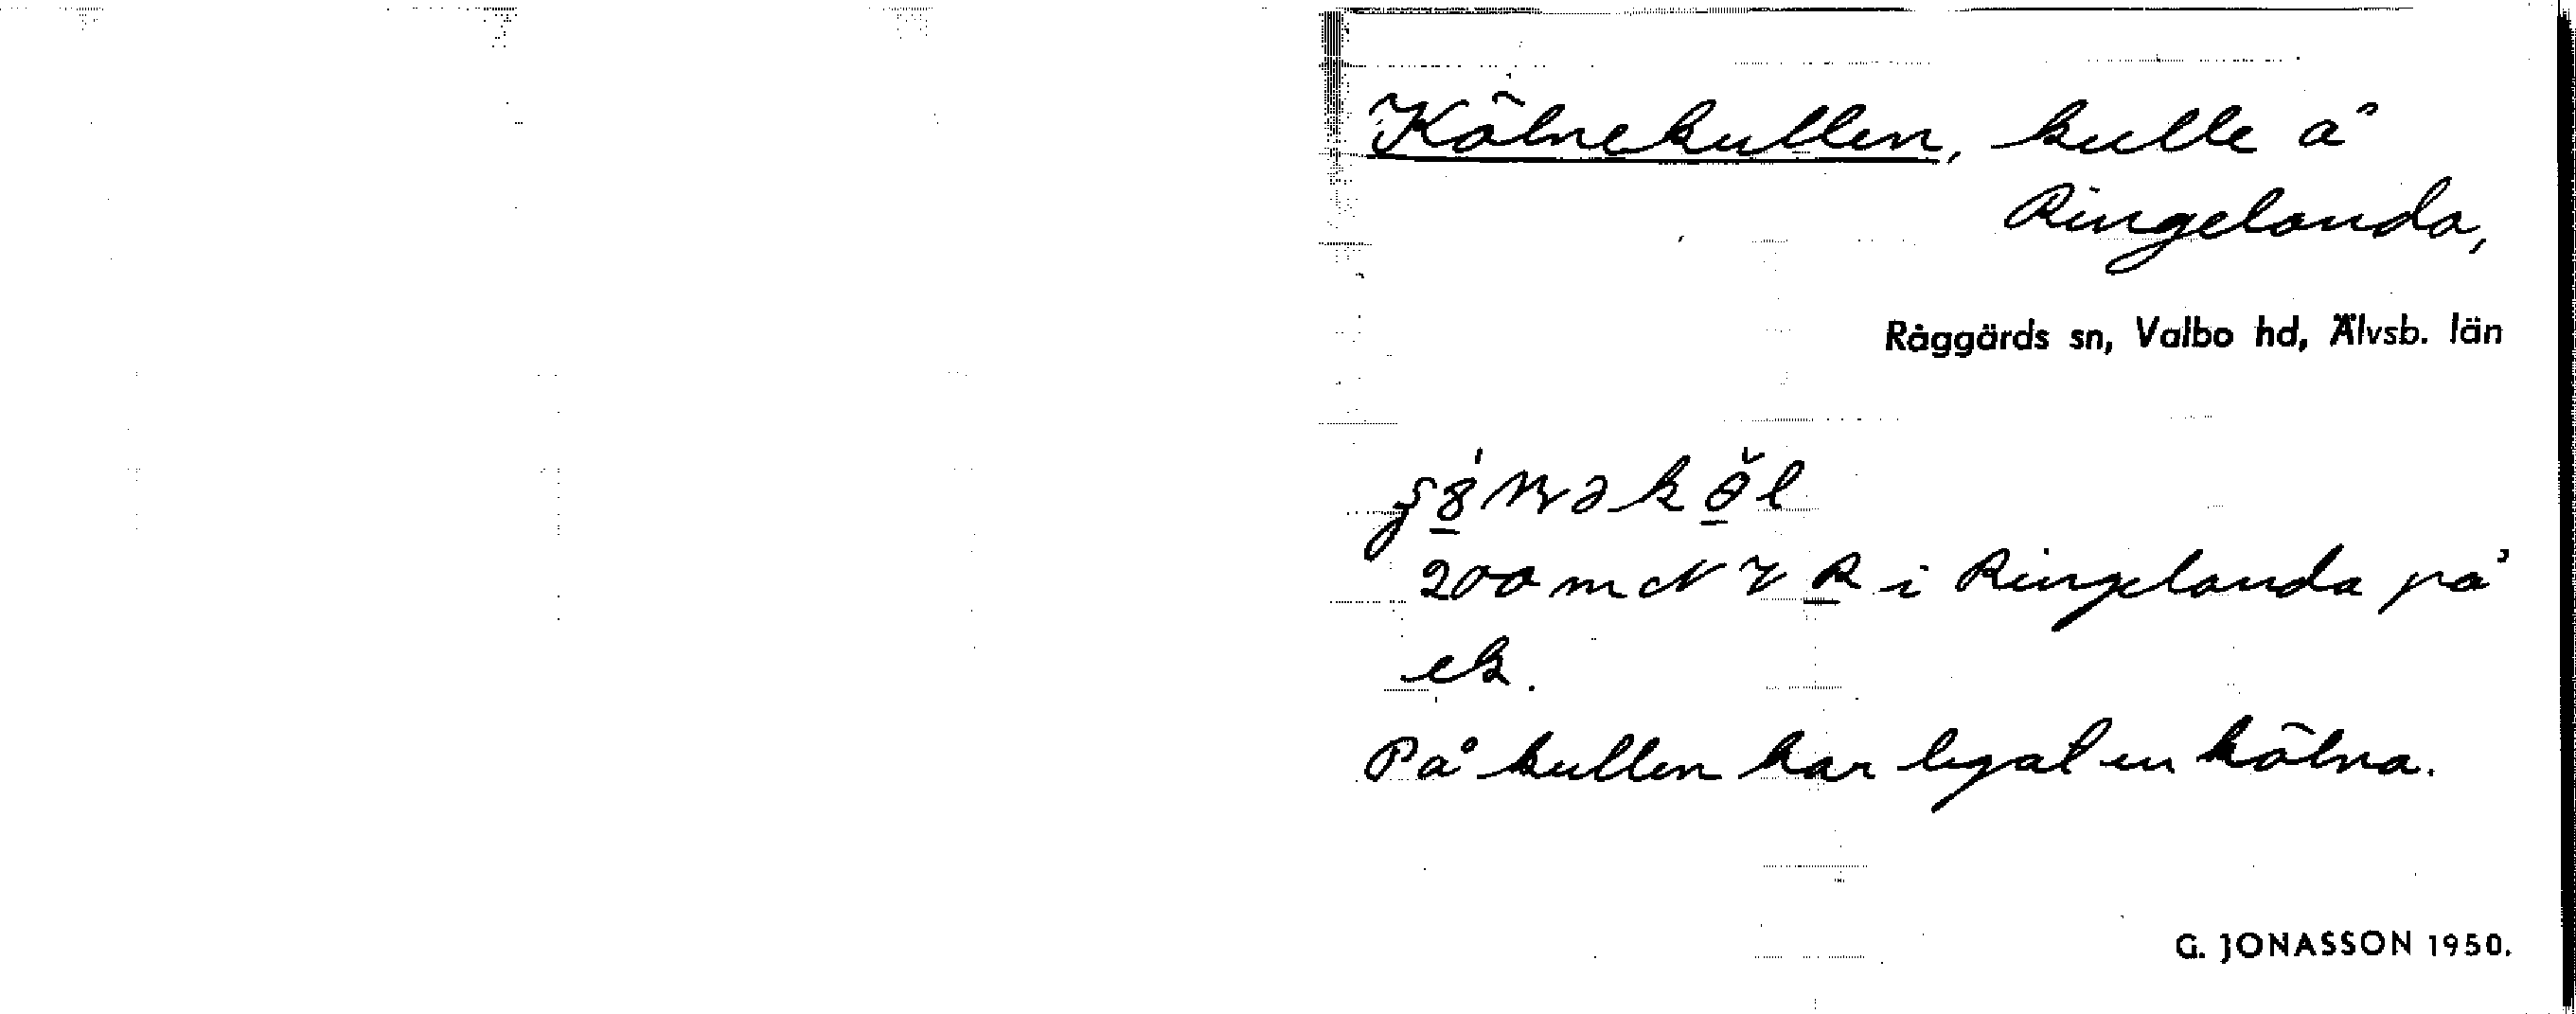 Kölnekullen, kulle å
Ringelanda,
Råggärds sn, Valbo hd, Älvsb. län
200 m N V R i Ringelanda på
ek.
På kullen har legat en kölna.
G. JONASSON 1950.